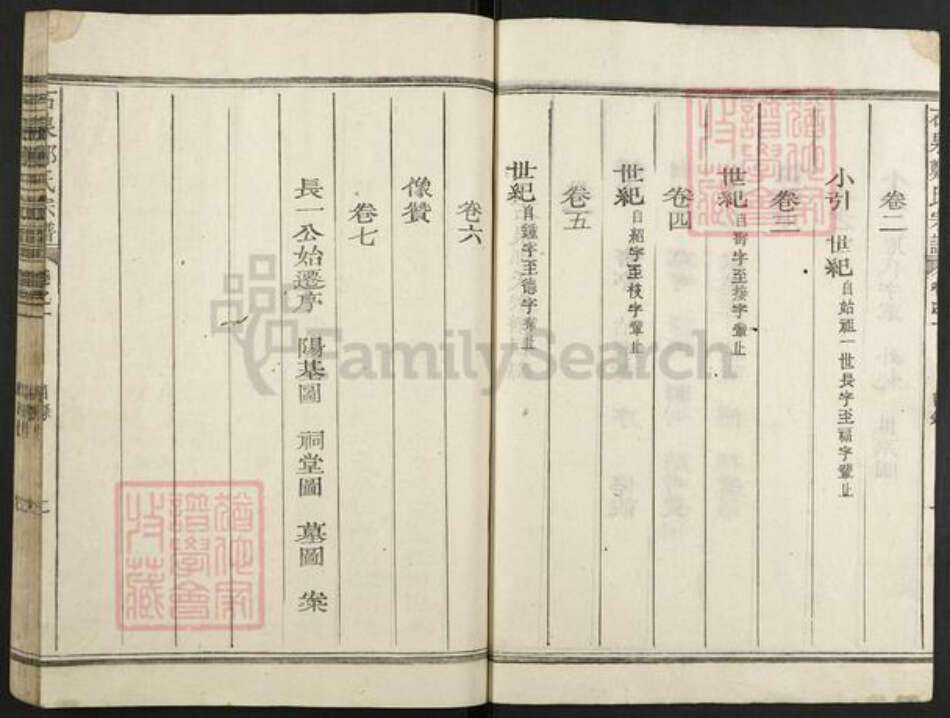 卷二
小引 世紀 自始祖一世長字至福字輩止
卷三
世紀 自 字至 字輩止
卷四
世紀 自紹字至枝字輩止
卷五
世紀 自鍾字至德字輩止
卷六
像贊
卷七
長一公始遷序 陽基圖 祠堂圖 墓圖 案
鄭氏宗譜
猶他家
譜學會
收藏
猶他家
譜學會
收藏
FamilySearch